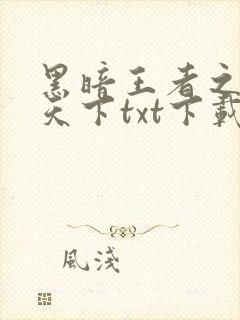 黑暗王者之
天下txt下載
風淺